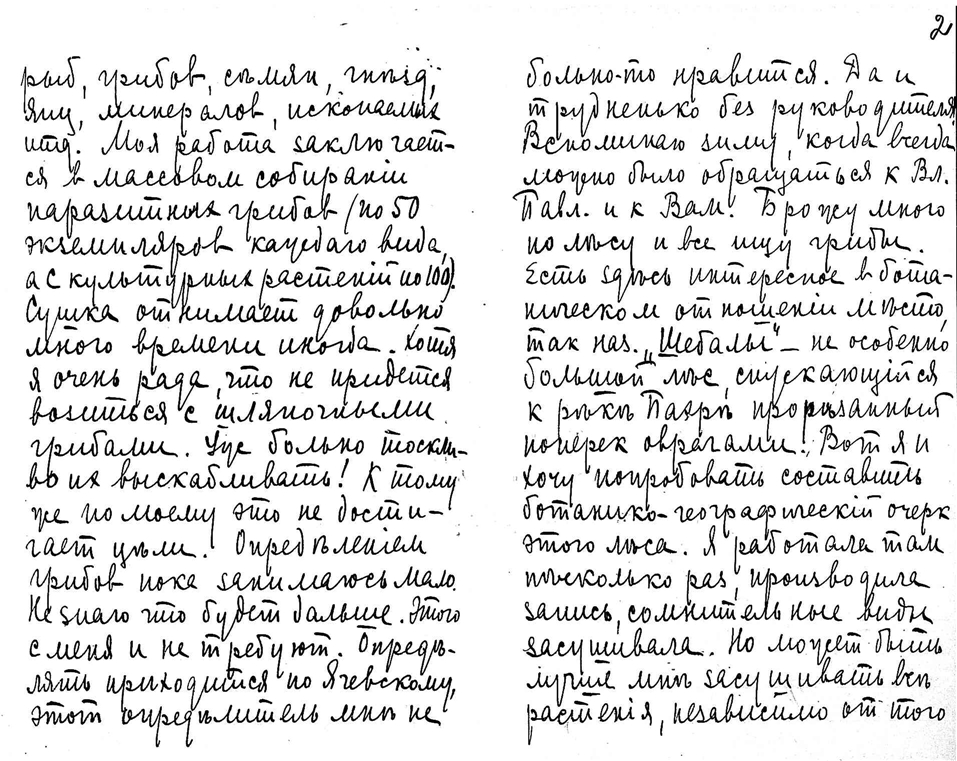 2
рыб, грибов, сѣмян, гнѣзд,
яиц, минералов, ископаемых
итд. Моя работа заключает-
ся в массовом собираніи
паразитных грибов (по 50
экземпляров каждаго вида,
а с культурных растеній по 100).
Сушка отнимает довольно
много времени иногда. Хотя
я очень рада, что не придется
возиться с шляпочными
грибами. Уж больно тоскли-
во их выскабливать! К тому
же по моему это не дости-
гает цѣли. Опредѣленіем
грибов пока занимаюсь мало.
Не знаю что будет дальше. Этого
с меня и не требуют. Опредѣ-
лять приходится по Ячевскому,
этот опредѣлитель мнѣ не
больно-то нравится. Да и
трудненько без руководителя.
Вспоминаю зиму, когда всегда
можно было обращаться к Вл.
Павл. и к Вам! Брожу много
по лѣсу и все ищу грибы.
Есть здѣсь интересное в бота-
ническом отношеніи мѣсто,
так наз. „Шебалы" – не особенно
большой лѣс, спускающійся
к рѣкѣ прорѣзанный
поперек оврагами. Вот я и
хочу попробовать составить
ботанико-географическій очерк
этого лѣса. Я работала там
нѣсколько раз, производила
запись, сомнительные виды
засушивала. Но может быть
лучше мнѣ засушивать всѣ
растенія, независимо от того